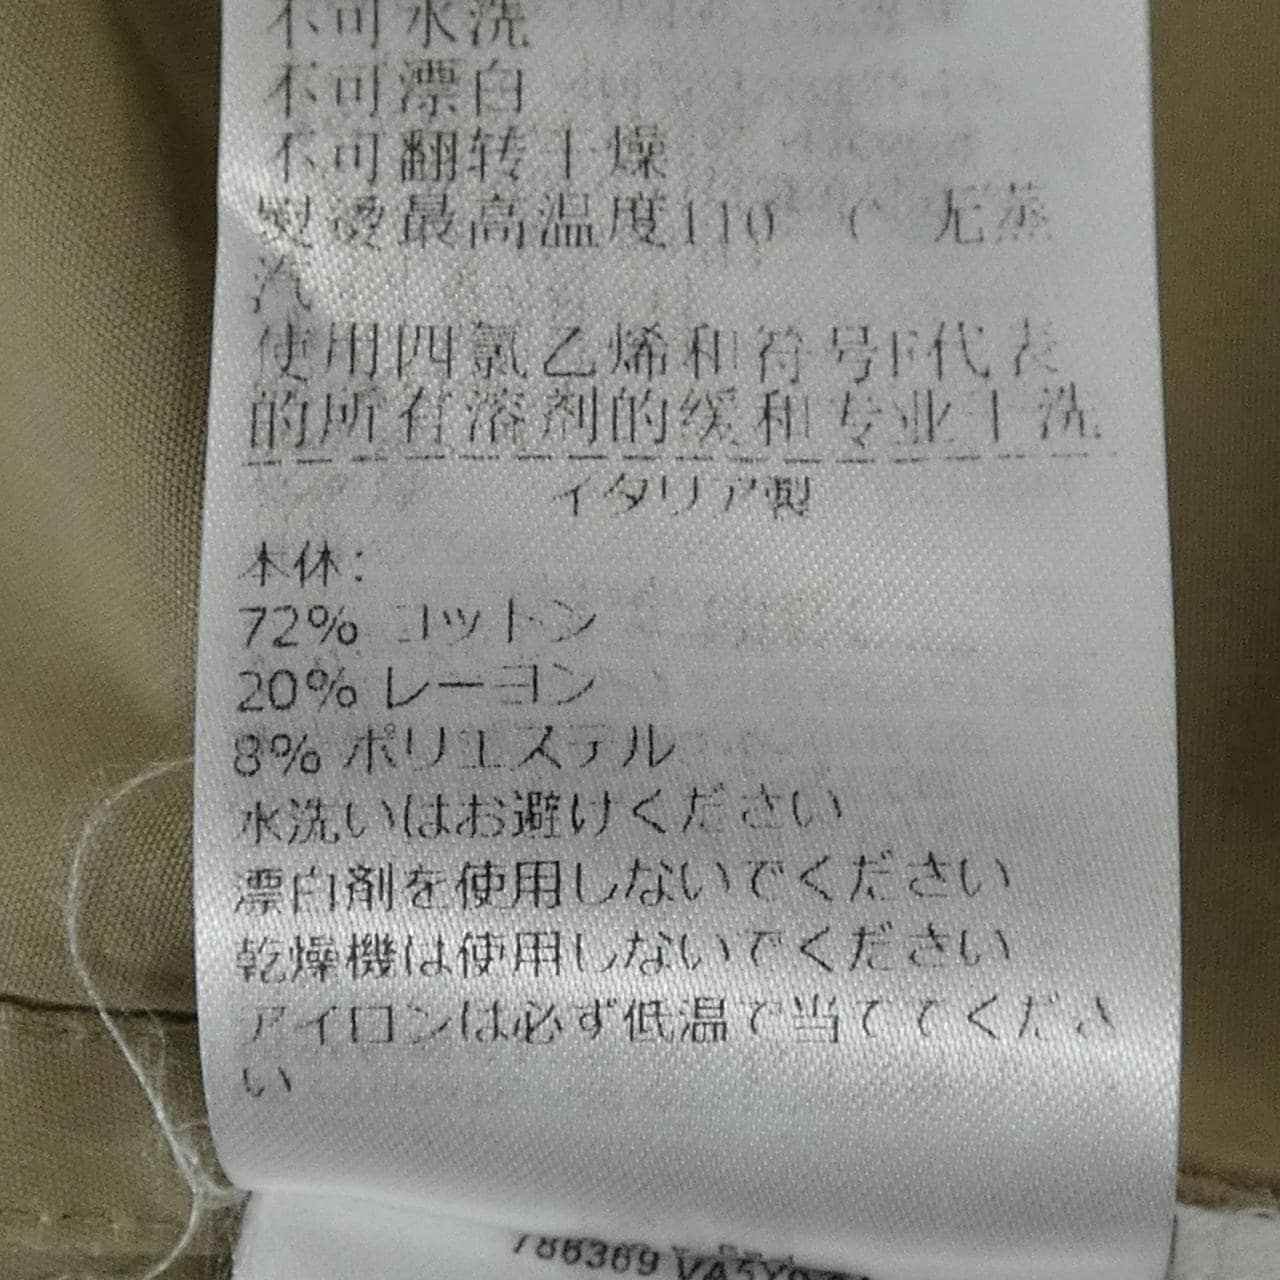 不可水洗
不可漂白
不可翻转干燥
熨烫最高温度110 °C 无蒸
汽
使用四氯乙烯和符号F代表
的所有溶剂的缓和专业干洗
イタリア製
本体:
72% コットン
20% レーヨン
8% ポリエステル
水洗いはお避けください
漂白剤を使用しないでください
乾燥機は使用しないでください
アイロンは必ず低温で当ててくださ
い
786369